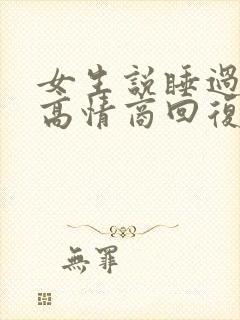 女生說睡過
高情商回復
無罪